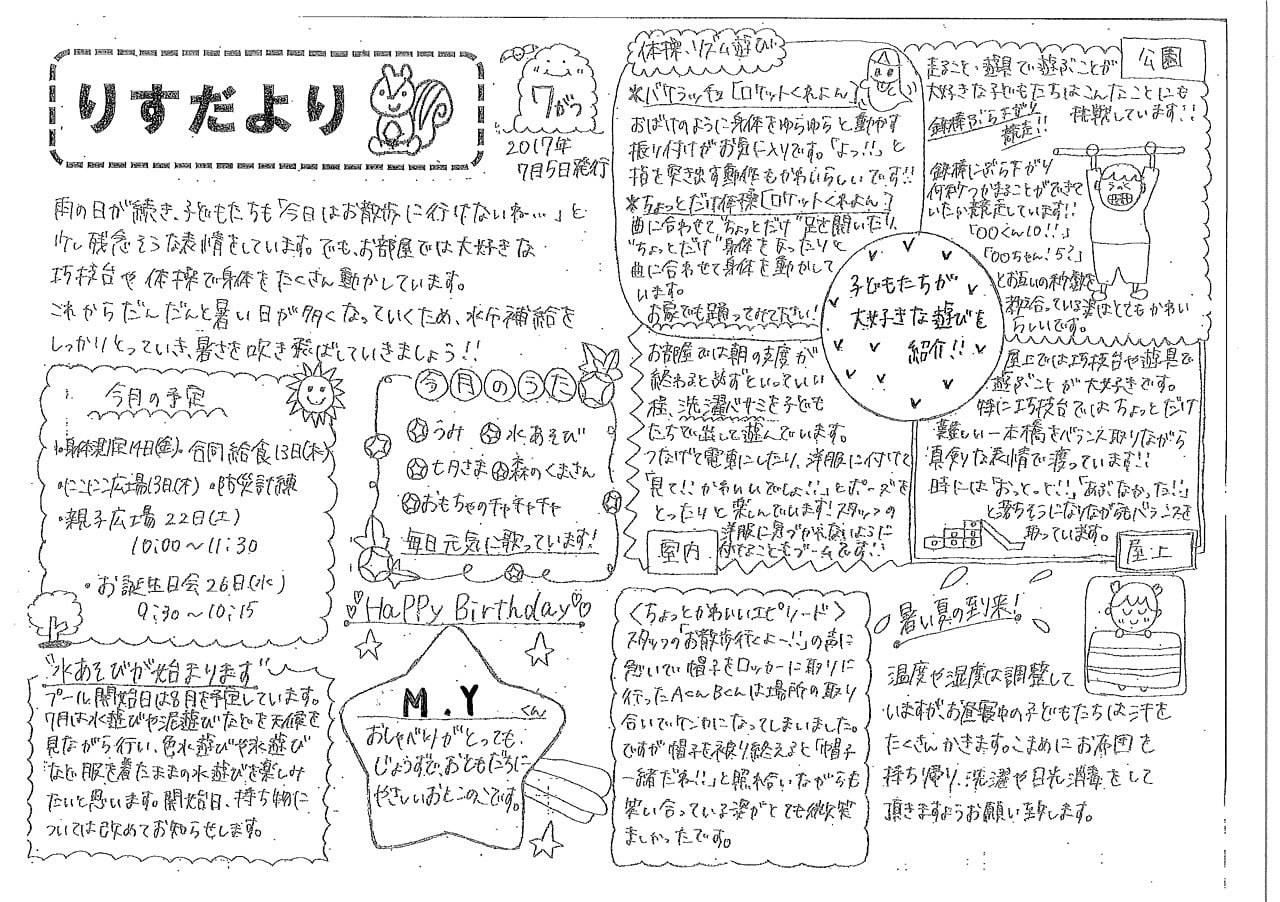 りすだより
7がつ
2017年
7月5日発行
雨の日が続き、子どもたちも「今日はお散歩に行けないね…」と
少し残念そうな表情をしています。でも、お部屋では大好きな
巧技台や体操で身体をたくさん動かしています。
これからだんだんと暑い日が多くなっていくため、水分補給を
しっかりとっていき、暑さを吹き飛ばしていきましょう!!
今月の予定
・身体測定14日(金)・合同給食13日(木)
・にこにこ広場13日(木)・防災訓練
・親子広場 22日(土)
10:00〜11:30
・お誕生日会26日(水)
9:30〜10:15
今月のうた
うみ 水あそび
七夕さま 森のくまさん
おもちゃのチャチャチャ
毎日元気に歌っています!
"水あそびが始まります"
プール開始日は8月を予定しています。
7月は水遊びや泥遊びなどを天候を
見ながら行い、色水遊びや氷遊び
など服を着たままの水遊びを楽しみ
たいと思います。開始日、持ち物に
ついては改めてお知らせします。
HaPPy Birthday
M.Y くん
おしゃべりがとっても
じょうずで、おともだちに
やさしいおとこのこです。
体操、リズム遊び
※バケラッチョ[ロケットくれよん]
おばけのように身体をゆらゆらと動かす
振り付けがお気に入りです。「よっ!!」と
指を突き出す動作もかわいらしいです!!
※ちょっとだけ体操[ロケットくれよん]
曲に合わせて"ちょっとだけ"足を開いたり、
"ちょっとだけ"身体を反ったりと
曲に合わせて身体を動かして
います。
お家でも踊ってみて下さい!
子どもたちが
大好きな遊びを
紹介!!
公園
走ること・遊具で遊ぶことが
大好きな子どもたちはこんなことにも
挑戦しています!!
鉄棒ぶら下がり
競走!!
鉄棒にぶら下がり
何秒つかまることができて
いたか競走しています!!
「〇〇くん10!!」
「〇〇ちゃん!5?」
とお互いの秒数を
教え合っている姿はとてもかわい
らしいです。
お部屋では朝の支度が
終わると必ずといっていい
程、洗濯バサミを子ども
たちで出して遊んでいます。
つなげて電車にしたり、洋服に付けて
「見て!!かわいいでしょ!!」とポーズを
とったりと楽しんでいます!スタッフの
洋服に気づかれないように
付けることもブームです!!
屋内
屋上では巧技台や遊具で
遊ぶことが大好きです。
特に巧技台ではちょっとだけ
難しい一本橋をバランス取りながら
真剣な表情で渡っています!!
時には「おっとっと!!」「あぶなかった!!」
と落ちそうになりながらもバランスを
取っています。
屋上
<ちょっとかわいいエピソード>
スタッフの「お散歩行くよ〜!!」の声に
急いで帽子をロッカーに取りに
行ったAくんBくんは場所の取り
合いでケンカになってしまいました。
ですが帽子を被り終えると「帽子
一緒だね!!」と照れ合いながらも
笑い合っている姿がとても微笑
ましかったです。
暑い夏の到来!
温度や湿度は調整して
いますがお昼寝中の子どもたちは汗を
たくさんかきます。こまめにお布団を
持ち帰り、洗濯や日光消毒をして
頂きますようお願い致します。